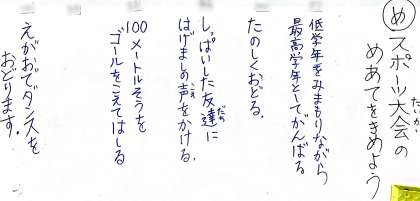 め スポーツ大会の
めあてをきめよう
低学年をみまもりながら
最高学年としてがんばる
たのしくおどる。
しっぱいした友達に
はげましの声をかける。
100メートルそうを
ゴールをこえてはしる
えがおでダンスを
おどります。